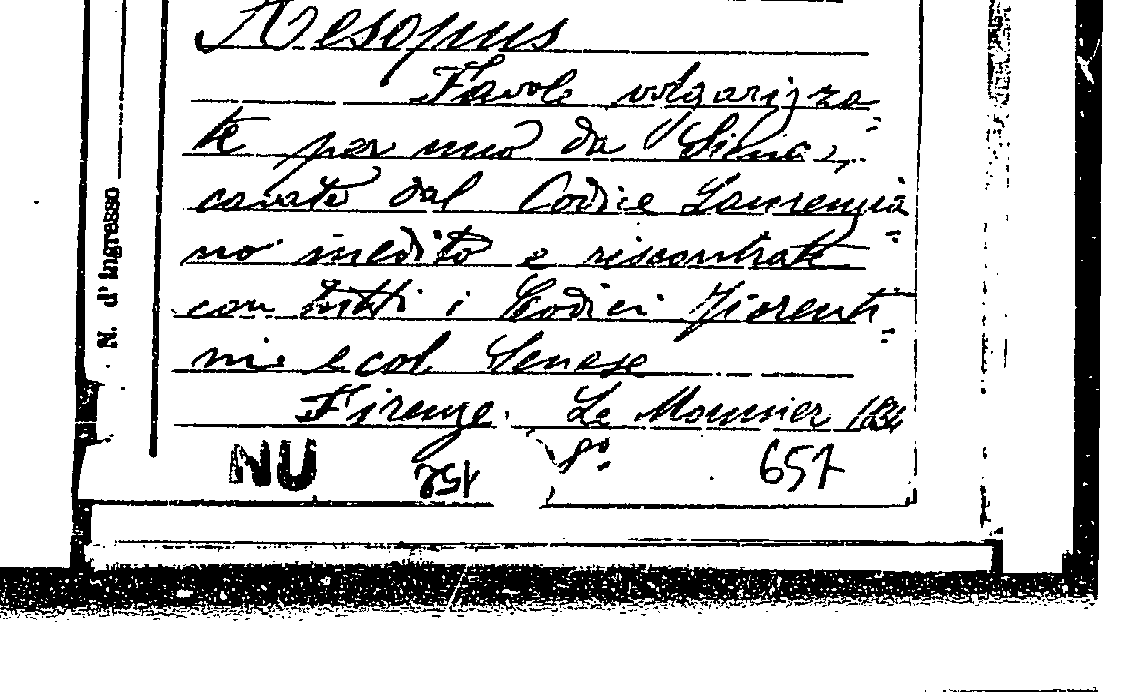 Aesopus
Favole volgarizza=
te per uno da Siena,
cavate dal Codice Laurenzia=
no inedito e riscontrate
con tutti i Codici Fiorenti=
ni e col Senese
Firenze. Le Monnier
NU 8° 657
N. d'Ingresso